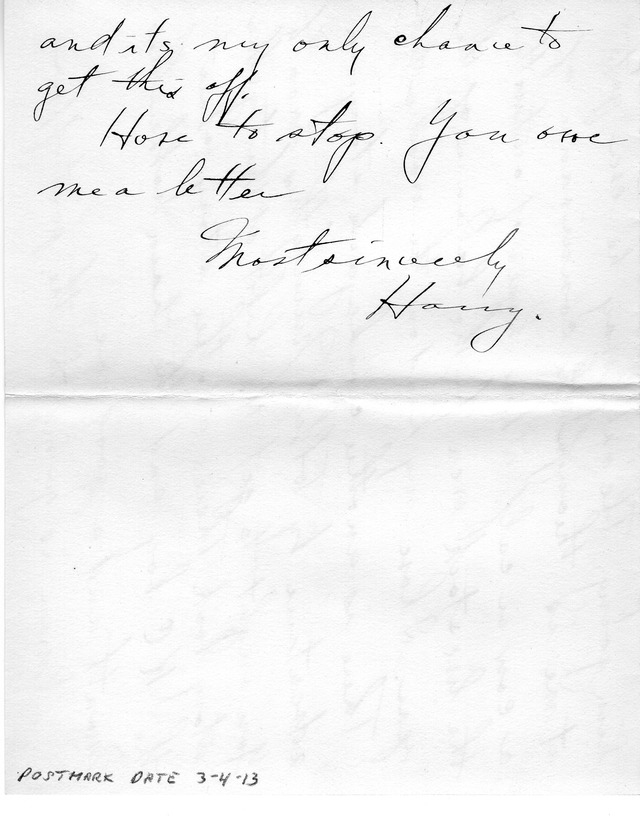 and its my only chance to
get this off.
Have to stop. You owe
me a letter
Most sincerely
Harry.
POSTMARK DATE 3-4-13